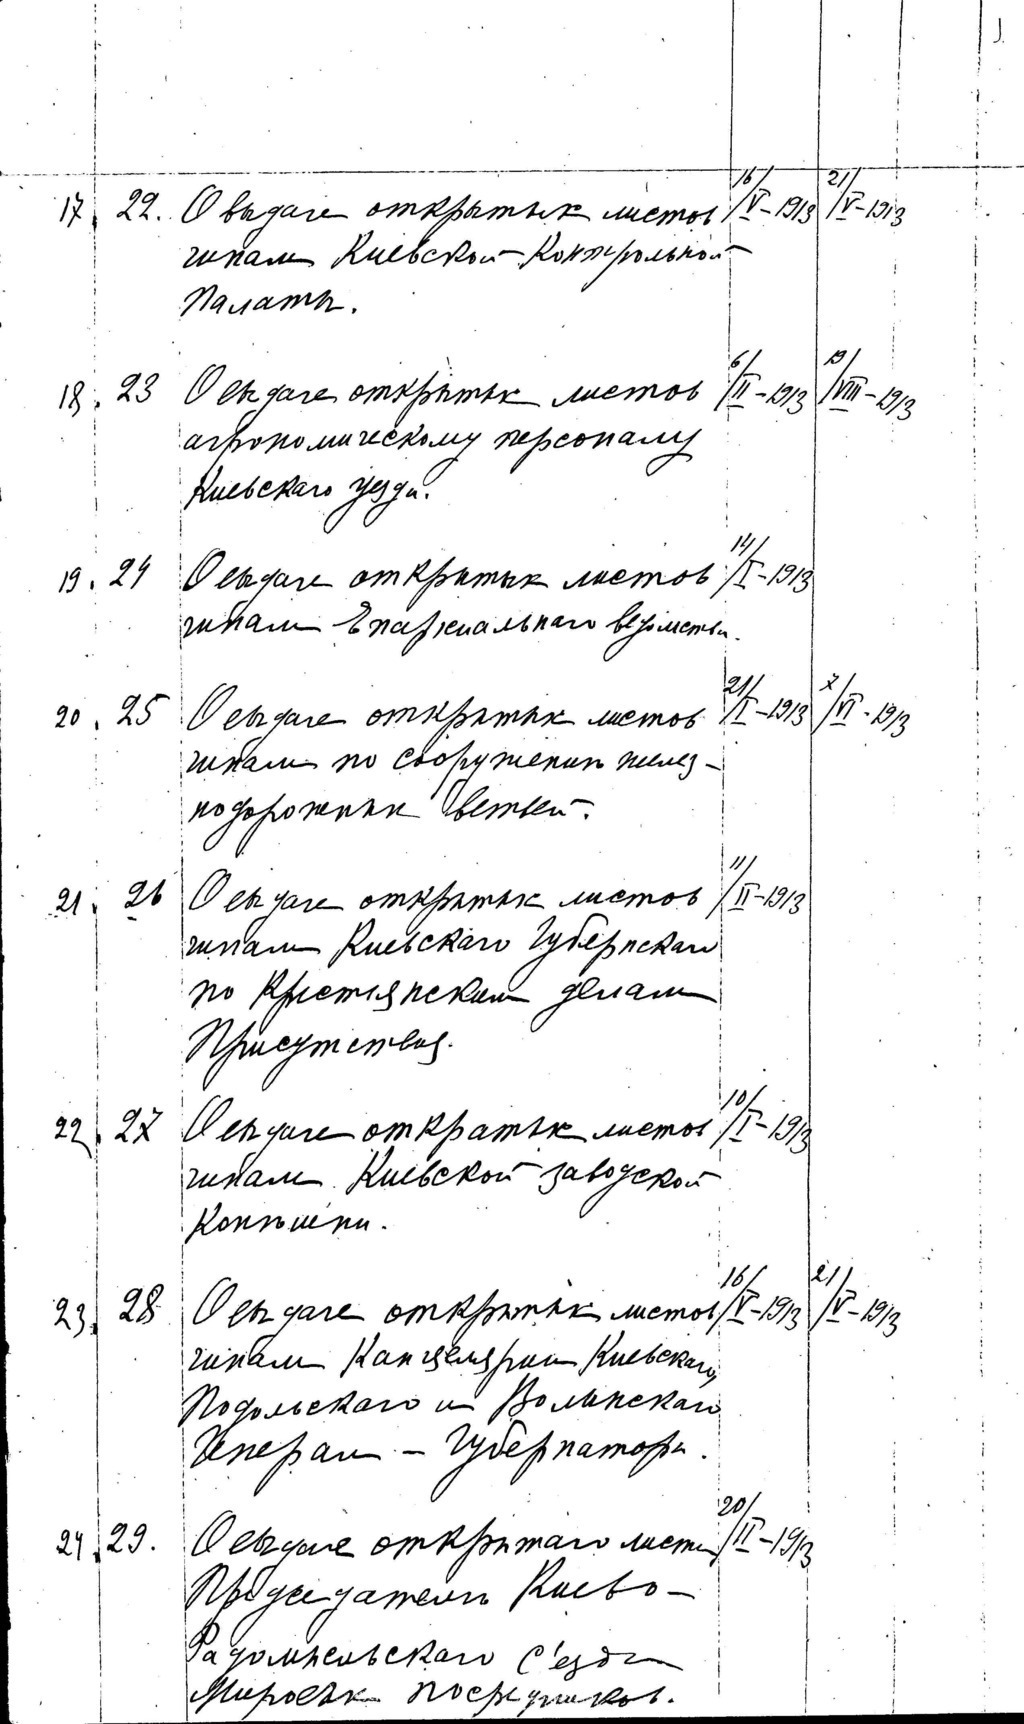 17. 22. О выдаче открытых листов 16/V-1913 21/V-1913
чинам Киевской Контрольной
Палаты.
18. 23 О выдаче открытых листов 6/II-1913 19/VIII-1913
агрономическому персоналу
Киевскаго уезда.
19. 24 О выдаче открытых листов 14/I-1913
чинам Епархиальнаго ведомства.
20. 25 О выдаче открытых листов 21/I-1913 7/VI-1913
чинам по сооружению желез-
нодорожных ветвей.
21. 26 О выдаче открытых листов 11/II-1913
чинам Киевскаго Губернскаго
по Крестьянским делам
Присутствия.
22. 27 О выдаче открытых листов 10/I-1913
чинам Киевской заводской
Конюшни.
23. 28 О выдаче открытых листов 16/V-1913 21/V-1913
чинам Канцелярии Киевскаго,
Подольскаго и Волынскаго
Генерал-Губернатора.
24. 29. О выдаче открытаго листа 20/II-1913
Председателю Киево-
Радомысльскаго С'езда
Мировых посредников.